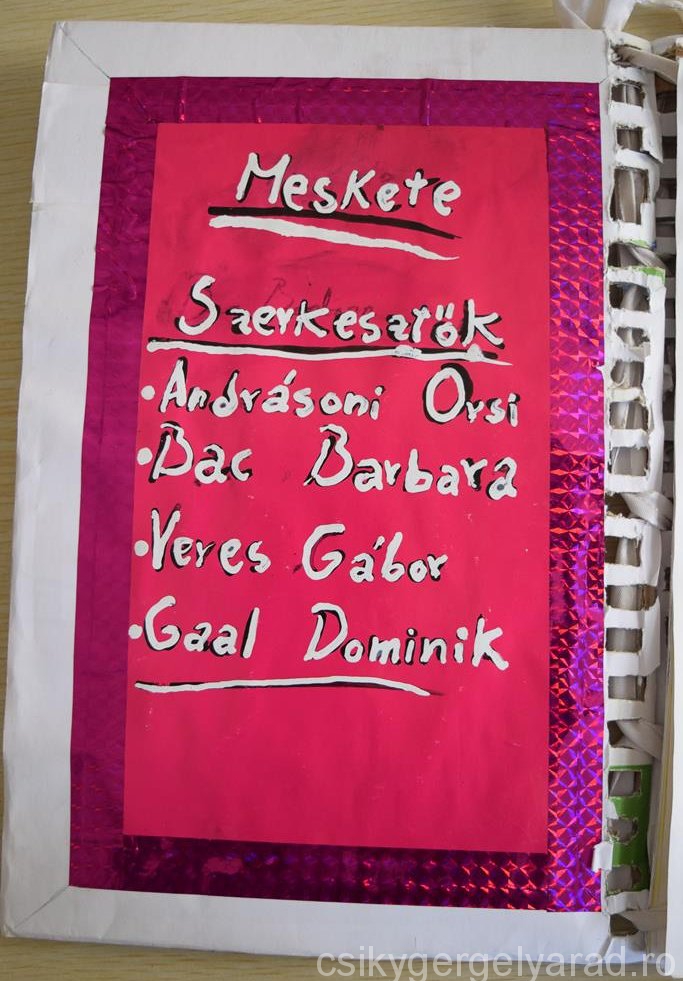 Meskete
Szerkesztők
•Andrásoni Orsi
•Bac Barbara
•Veres Gábor
•Gaal Dominik
csikygergelyarad.ro